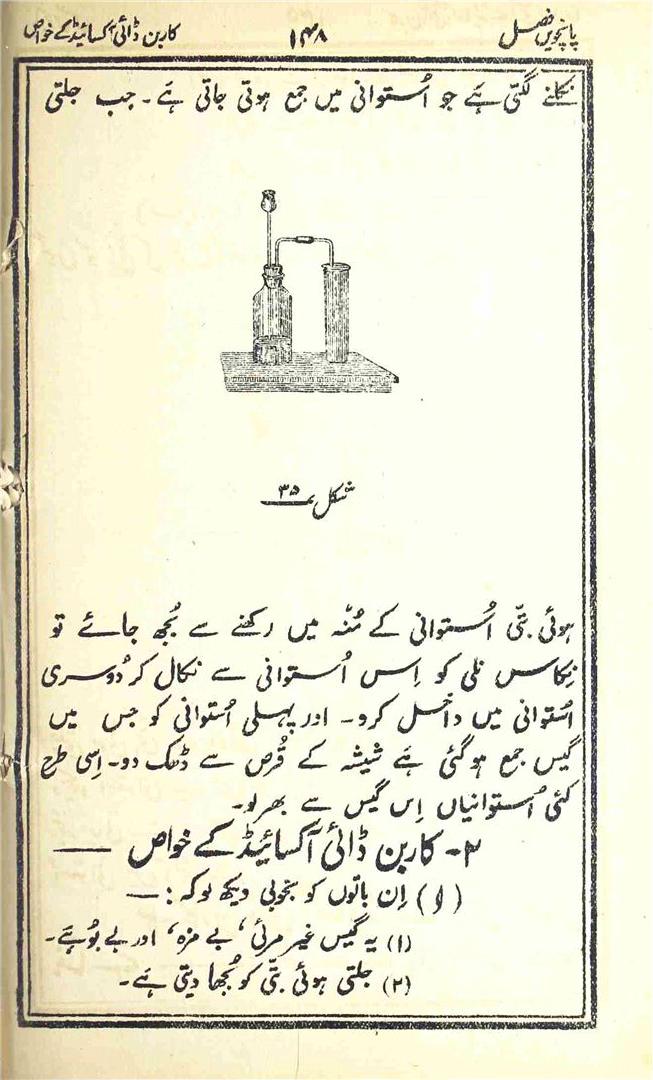 پانچویں فصل ۱۴۸ کاربن ڈائی آکسائیڈ کے خواص
نکلنے لگتی ہَے جو اُستوانی میں جمع ہوتی جاتی ہَے ۔ جب جلتی
شکل نمبر ۳۵
ہوئی بتّی اُستوانی کے مُنّہ میں رکھنے سے بُجھ جائے تو
نِکاس نلی کو اِس اُستوانی سے نکال کر دُوسری
اُستوانی میں داخل کرو ۔ اور پہلی اُستوانی کو جس میں
گیس جمع ہوگئی ہَے شیشہ کے قُرص سے ڈھک دو ۔ اِسی طرح
کئی اُستوانیاں اِس گیس سے بھر لو ۔
۲ ۔ کاربن ڈائی آکسائیڈ کے خواص ——
( ا ) اِن باتوں کو بخوبی دیکھ لو کہ : —
(۱) یہ گیس غیر مرئی ‘ بے مزہ ‘ اور بے بُو ہَے ۔
(۲) جلتی ہوئی بتّی کو بُجھا دیتی ہَے ۔